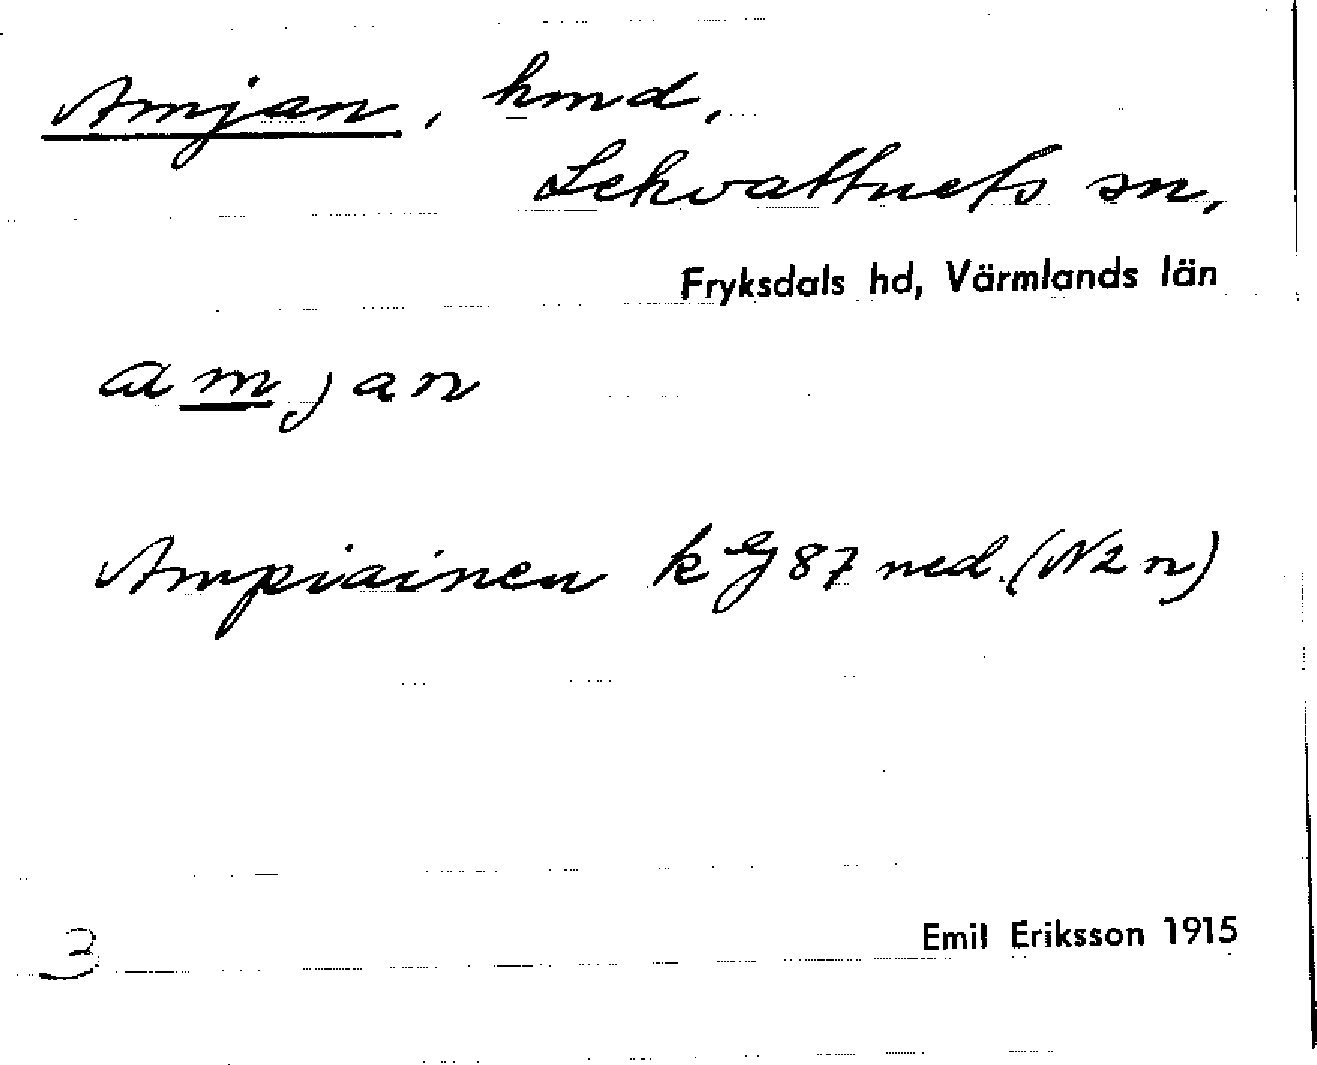 Amjan, hmd,
Lekvattnets sn,
Fryksdals hd, Värmlands län
amjan
Ampiainen k Ej 87 ned. (N2n)
Emil Eriksson 1915
3